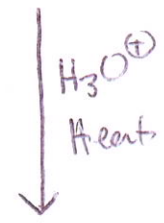 H₃O⊕
Heat.